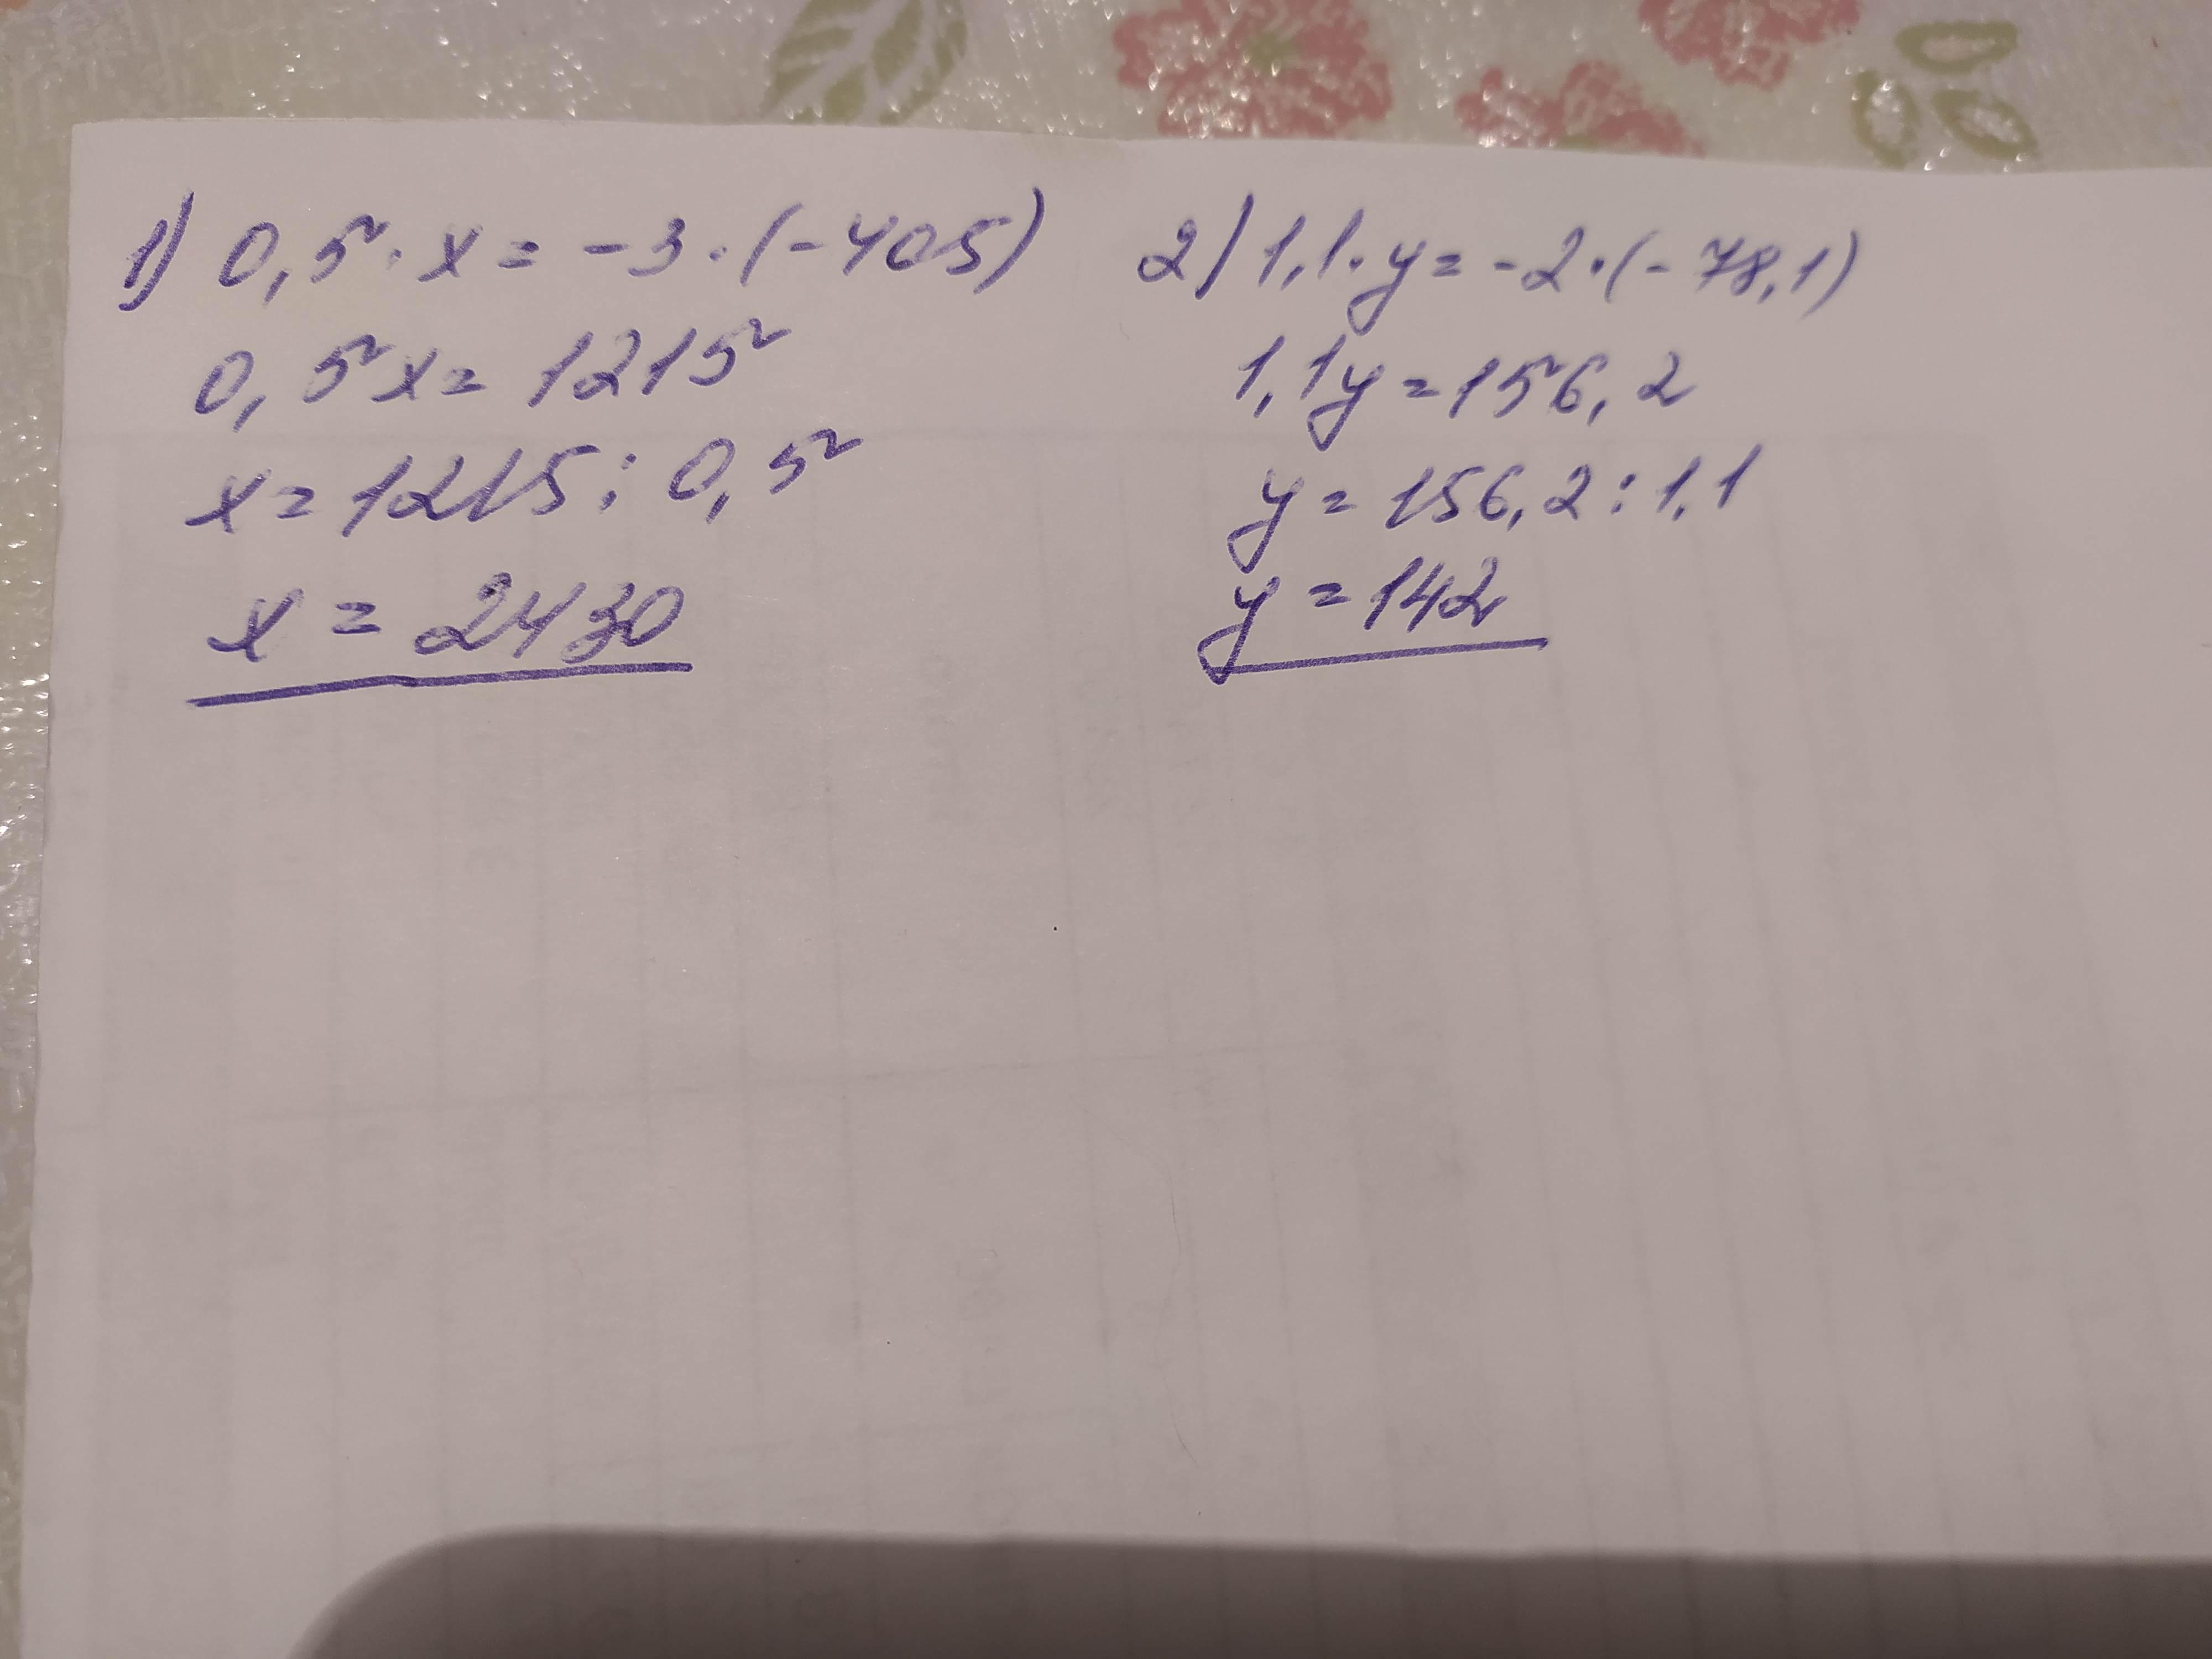 1) 0,5 · x = -3 · (-405)
0,5x = 1215
x = 1215 : 0,5
x = 2430
2) 1,1 · y = -2 · (-78,1)
1,1y = 156,2
y = 156,2 : 1,1
y = 142